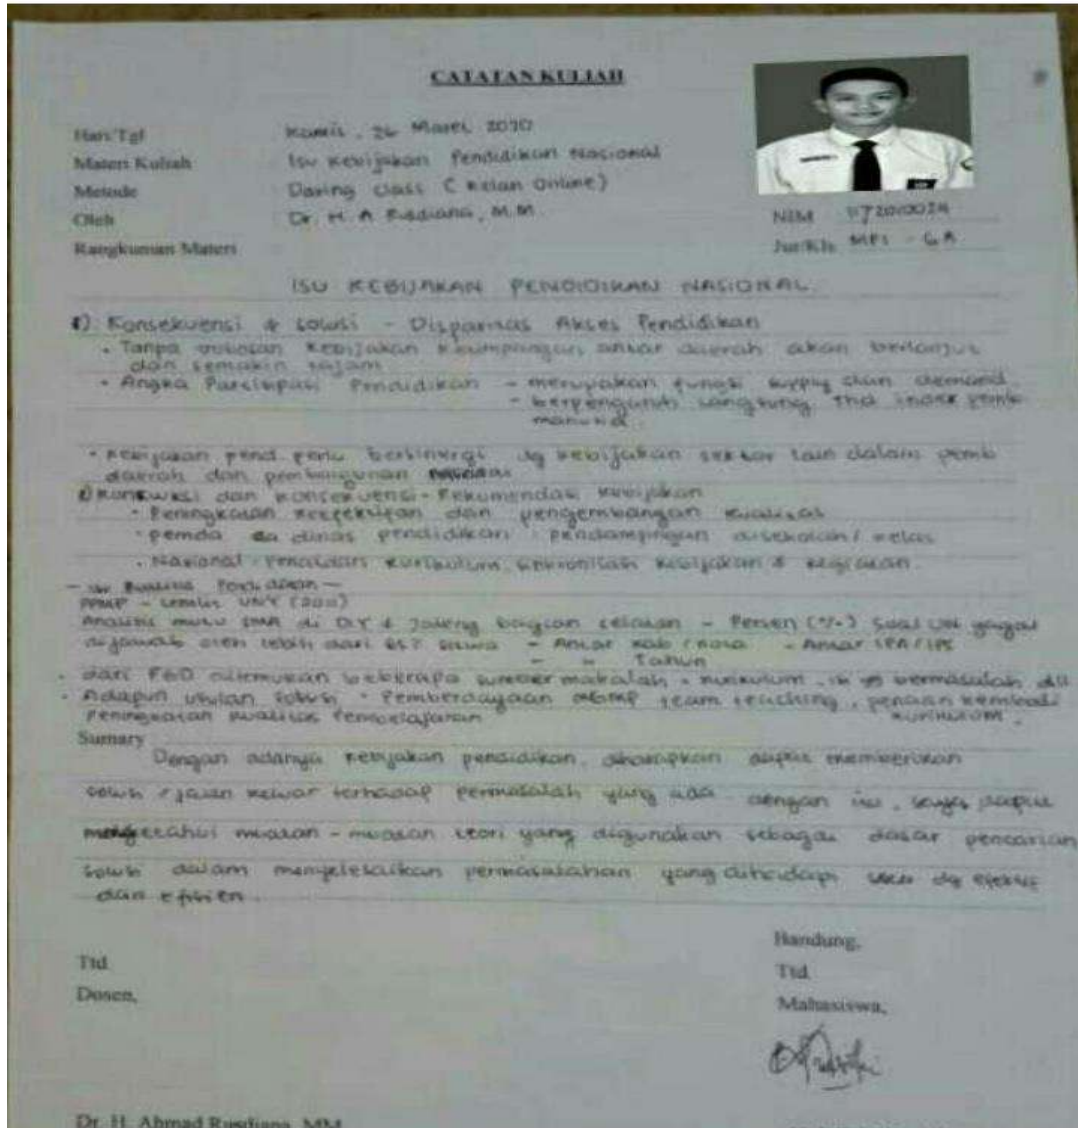 CATATAN KULIAH
Hari/Tgl Kamis, 26 Maret 2020
Materi Kuliah Isu Kebijakan Pendidikan Nasional
Metode Daring class (Kelan Online)
Oleh Dr. H. A Rusdiana, M.M.
NIM
Rangkuman Materi
Jur/Kls MPI - 6A
ISU KEBIJAKAN PENDIDIKAN NASIONAL.
1) Konsekuensi & solusi - Disparitas Akses Pendidikan
• Tanpa kebijakan antar daerah akan berlanjut
dan semakin tajam
• Angka Partisipasi Pendidikan - merupakan fungsi supply dan demand
- berpengaruh langsung thd
manusia.
• Kebijakan pend. perlu bersinergi dg kebijakan sektor lain dalam pemb
daerah dan pembangunan
dan konsekuensi - Rekomendasi Kebijakan
• Peningkatan dan pengembangan kualitas
• pemda dinas pendidikan : pendampingan disekolah / kelas
• Nasional : kurikulum, sinkronisasi kebijakan & kegiatan.
PPMP - Lemlit UNY (2011)
Analisis mutu SMA di DIY & Jateng bagian selatan - Persen (%) Soal UN gagal
dijawab oleh lebih dari siswa - Antar kab / kota - Antar IPA / IPS
- " Tahun
• dari FGD ditemukan beberapa sumber makalah • kurikulum yg bermasalah dll
• Adapun usulan solusi • Pemberdayaan MGMP team teaching, kembali
Peningkatan kualitas Pembelajaran kurikulum.
Sumary
Dengan adanya kebijakan pendidikan, diharapkan dapat memberikan
solusi / jalan keluar terhadap permasalah yang ada dengan itu, saya dapat
mengetahui muatan - muatan teori yang digunakan sebagai dasar pencarian
solusi dalam menyelesaikan permasalahan yang dihadapi dg efektif
dan efisien.
Bandung,
Ttd Ttd
Dosen, Mahasiswa,
Dr. H. Ahmad Rusdiana, MM